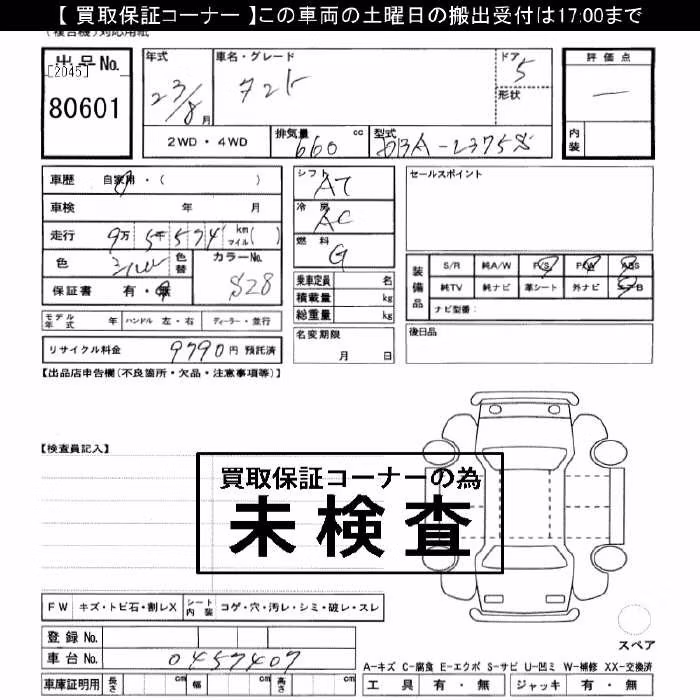 【 買取保証コーナー 】この車両の土曜日の搬出受付は17:00まで
出品No.
[2045]
80601
年式
23/8 月
車名・グレード
ドア
5
形状
評価点
—
内装
2WD・4WD
排気量 cc
660
型式
車歴 自家用・( )
車検 年 月
走行 9万 5千 574 km マイル( )
色
シルバ
色替
カラーNo.
S28
保証書 有・無
モデル年式 年 ハンドル 左・右 ディーラー・並行
リサイクル料金 9790円 預託済
シフト
AT
冷房
AC
燃料
G
乗車定員 名
積載量 kg
総重量 kg
名変期限
月 日
セールスポイント
装備品
S/R 純A/W P/S P/W ABS
純TV 純ナビ 革シート 外ナビ エアB
ナビ型番:
後日品
【出品店申告欄(不良箇所・欠品・注意事項等)】
【検査員記入】
買取保証コーナーの為
未検査
FW キズ・トビ石・割レX シート内装 コゲ・穴・汚レ・シミ・破レ・スレ
登録No.
車台No. 0457407
車庫証明用 長さ cm 幅 cm 高さ cm
スペア
A-キズ C-腐食 E-エクボ S-サビ U-凹ミ W-補修 XX-交換済
工具 有・無 ジャッキ 有・無